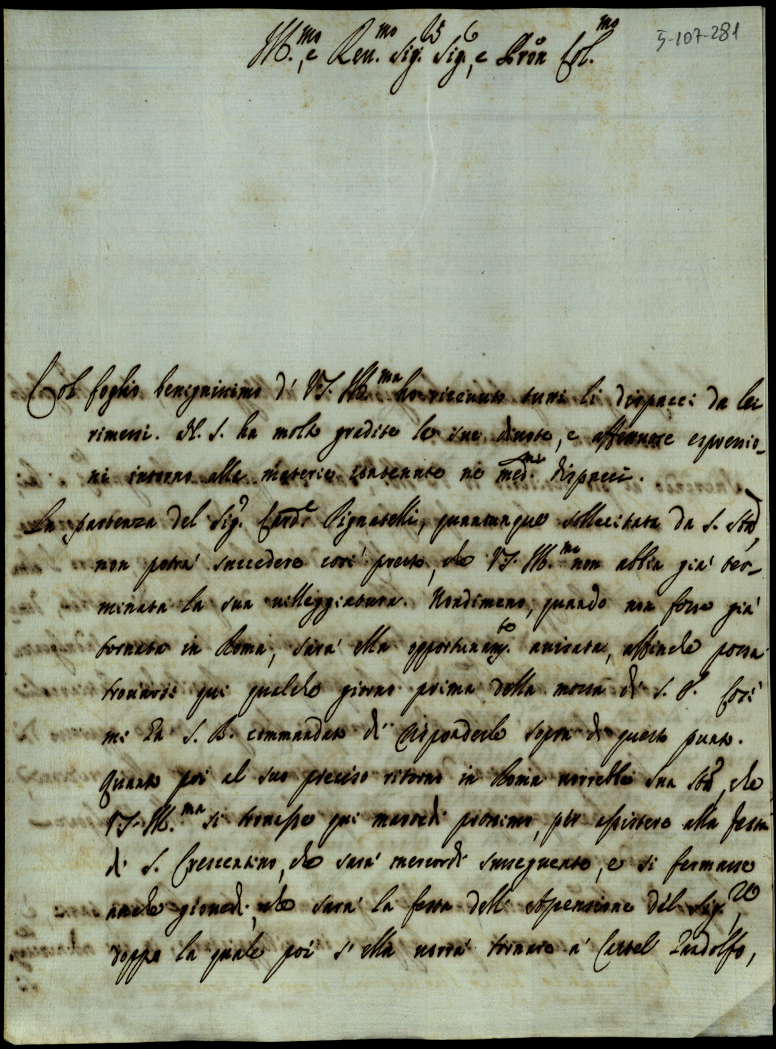 5-107-281
Ill.mo, e Rev.mo Sig. Sig., e Pron Col.mo
Col foglio benignissimo di VS. Ill.ma ho ricevuto tutti li dispacci da lei
rimessi. N. S. ha molto gradite le sue divote, e affettuose espressio-
ni intorno alle materie contenute ne med.mi dispacci.
La partenza del Sig.r Card.e Pignatelli, quantunque sollecitata da S. Stà,
non potrà succedere così presto, che VS. Ill.ma non abbia già ter-
minata la sua villeggiatura. Nondimeno, quando non fosse già
tornata in Roma, sarà ella opportunam.te avisata, affinche possa
trovarsi qui qualche giorno prima della mossa di S. E. Così
mi hà S. B. commandato di risponderle sopra di questo punto.
Quanto poi al suo preciso ritorno in Roma vorrebbe sua Stà, che
VS. Ill.ma si trovasse qui martedì prossimo, per assistere alla festa
di S. Crescentino, che sarà mercordì susseguente, e si fermasse
anche giovedì, che sarà la festa dell'Ascensione del Sig.re
doppo la quale poi s'ella vorrà tornare à Castel Gandolfo,